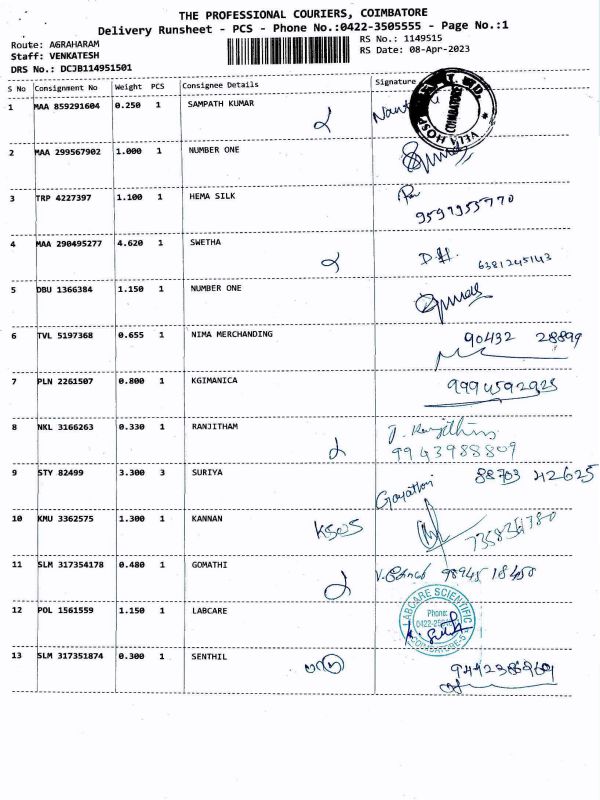 THE PROFESSIONAL COURIERS, COIMBATORE
Delivery Runsheet - PCS - Phone No.:0422-3505555 - Page No.:1
Route: AGRAHARAM
RS No.: 1149515
Staff: VENKATESH
RS Date: 08-Apr-2023
DRS No.: DCJB114951501
S No Consignment No Weight PCS Consignee Details Signature
1 MAA 859291604 0.250 1 SAMPATH KUMAR
2 MAA 299567902 1.000 1 NUMBER ONE
3 TRP 4227397 1.100 1 HEMA SILK
9597955770
4 MAA 290495277 4.620 1 SWETHA
6381245143
5 DBU 1366384 1.150 1 NUMBER ONE
6 TVL 5197368 0.655 1 NIMA MERCHANDING 90432 28899
7 PLN 2261507 0.800 1 KGIMANICA 9994592925
8 NKL 3166263 0.330 1 RANJITHAM
9943988809
9 STY 82499 3.300 3 SURIYA 88703 42625
Gayathri
10 KMU 3362575 1.300 1 KANNAN
11 SLM 317354178 0.480 1 GOMATHI 98945 18450
12 POL 1561559 1.150 1 LABCARE LABCARE SCIENTIFIC
Phone:
13 SLM 317351874 0.300 1 SENTHIL